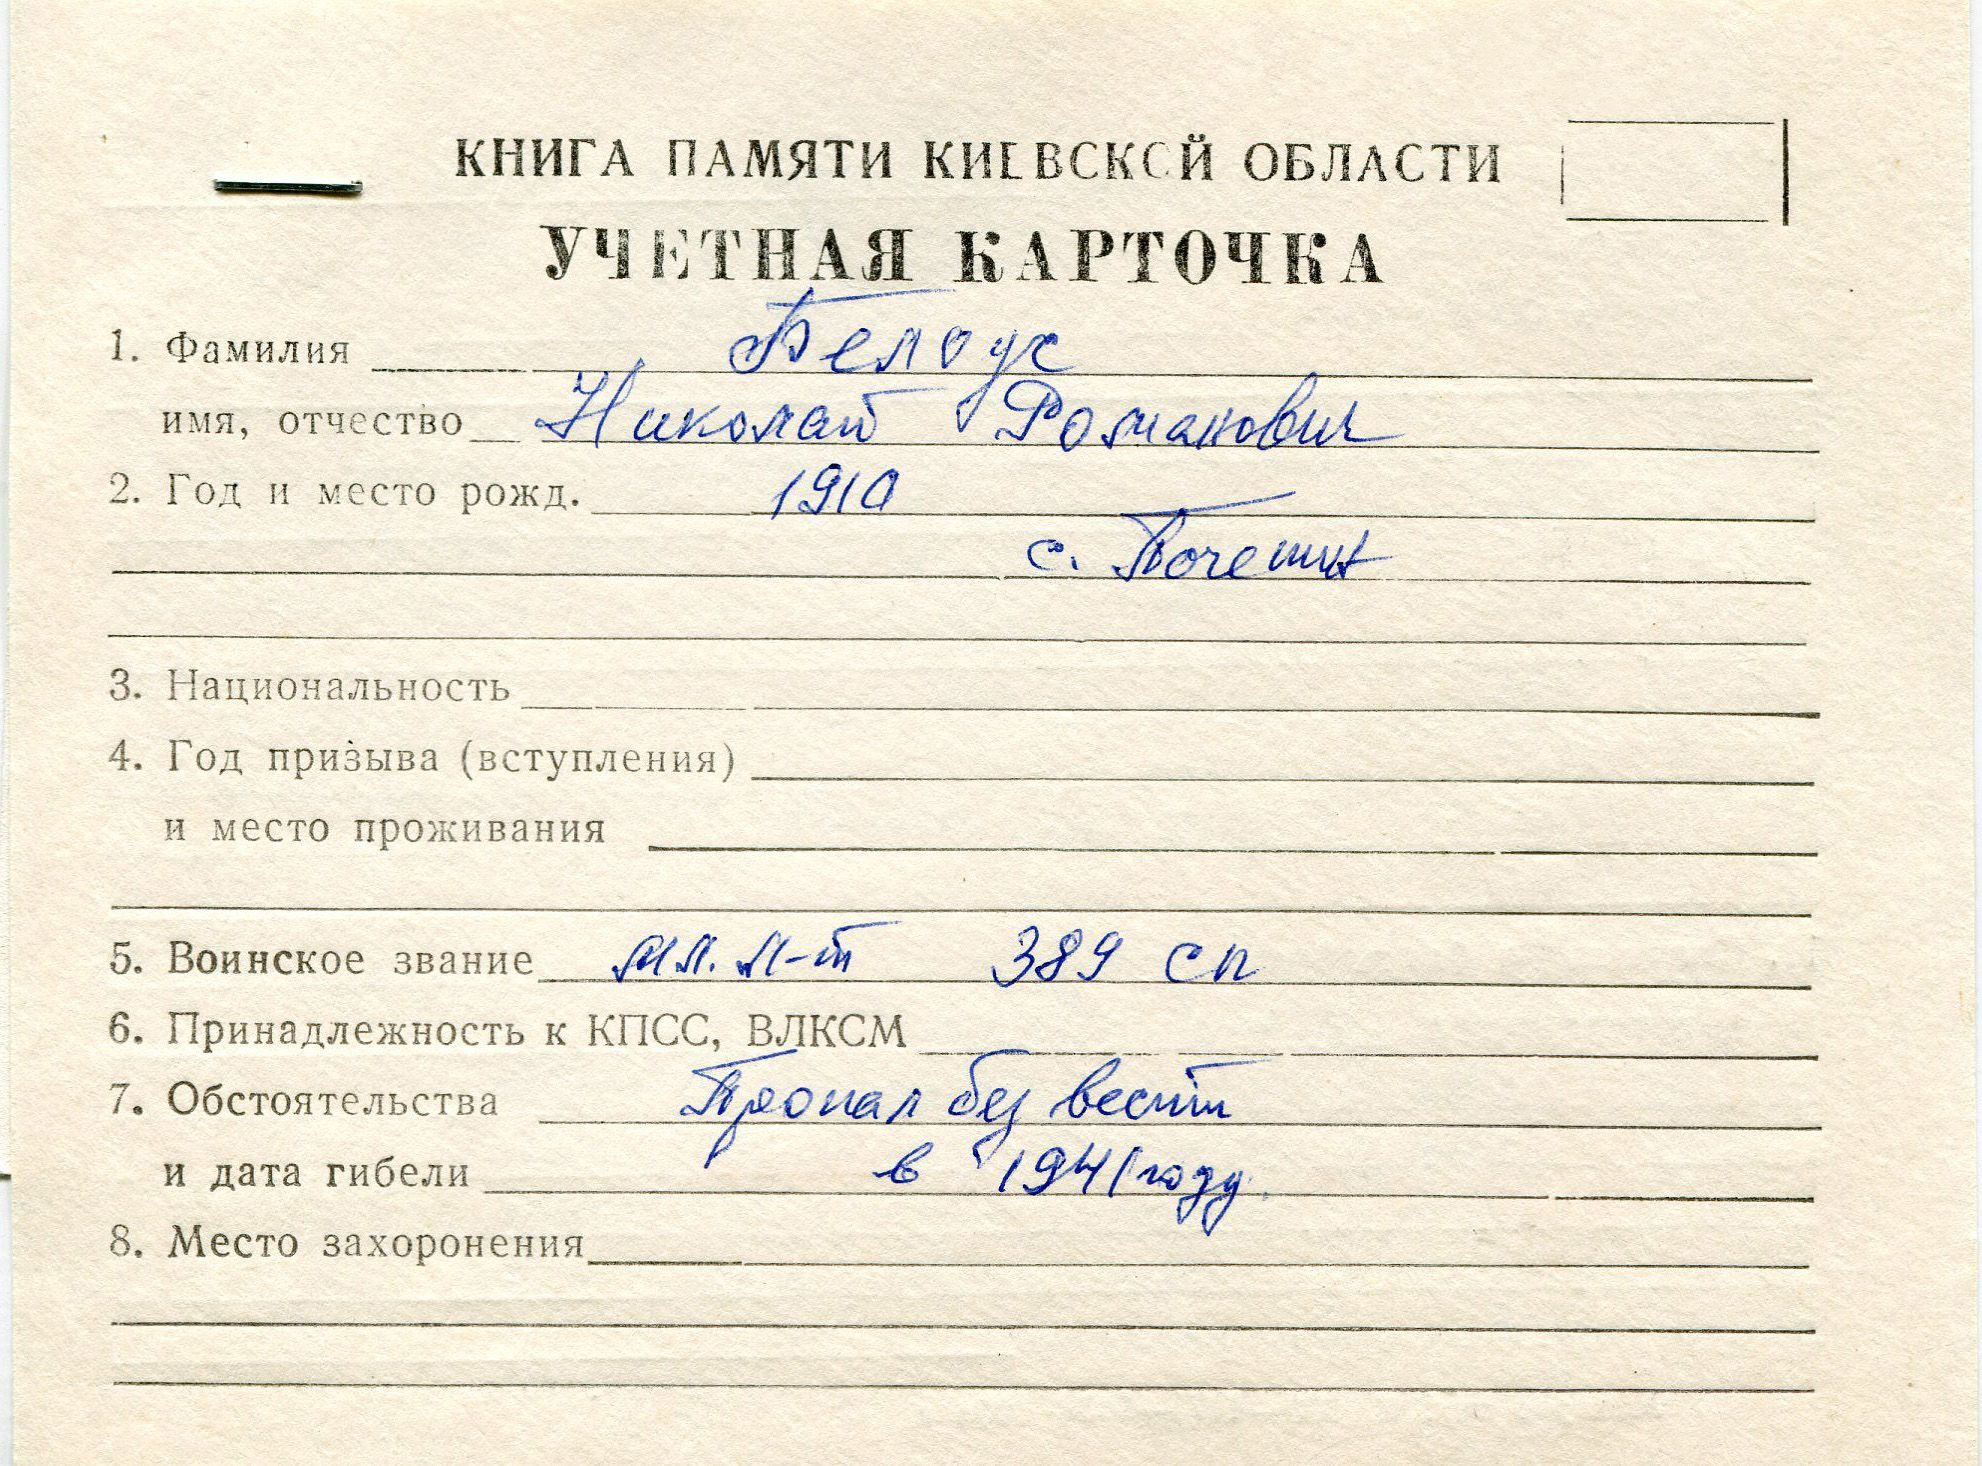 КНИГА ПАМЯТИ КИЕВСКОЙ ОБЛАСТИ
УЧЕТНАЯ КАРТОЧКА
1. Фамилия Белоус
имя, отчество Николай Романович
2. Год и место рожд. 1910
с.
3. Национальность
4. Год призыва (вступления)
и место проживания
5. Воинское звание мл. л-т 389 сп
6. Принадлежность к КПСС, ВЛКСМ
7. Обстоятельства Пропал без вести
и дата гибели в 1941 году.
8. Место захоронения